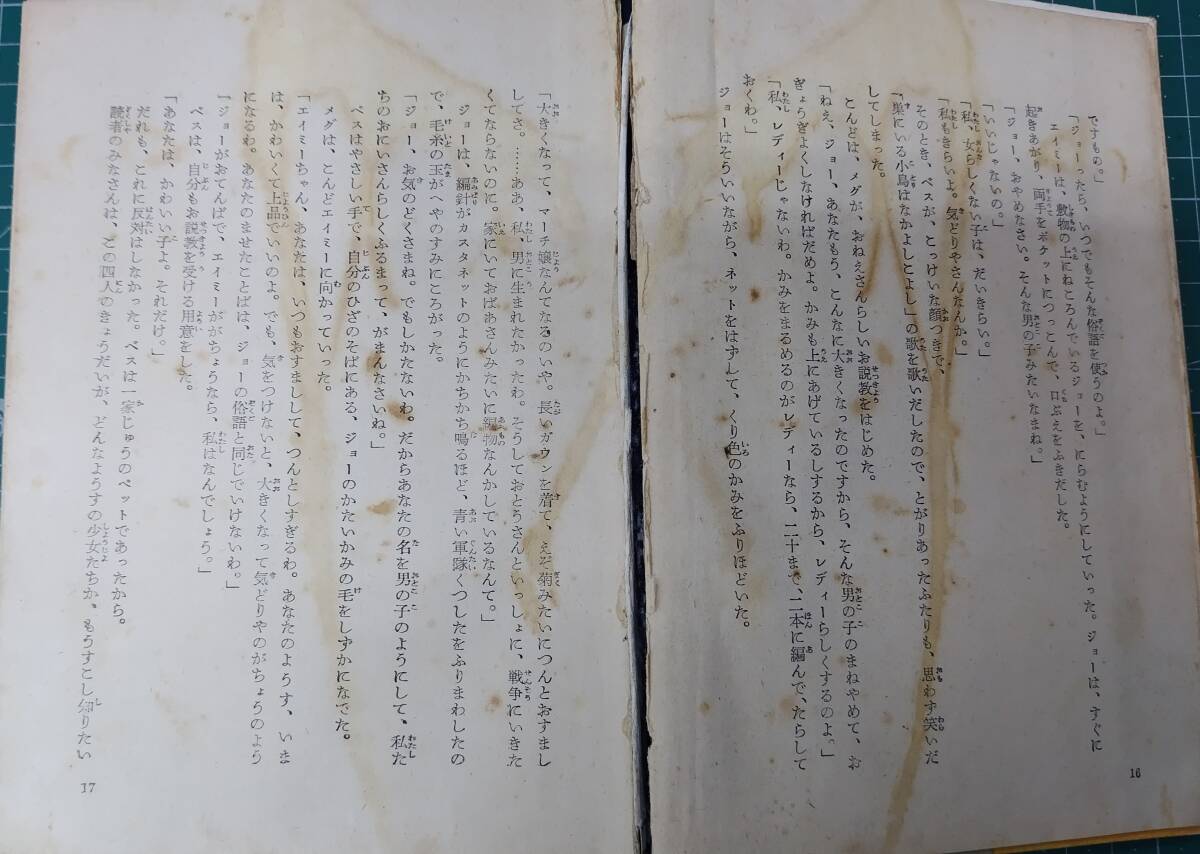 ですもの。」
「ジョーったら、いつでもそんな俗語を使うのよ。」
エイミーは、敷物の上にねころんでいるジョーを、にらむようにしていった。ジョーは、すぐに
起きあがり、両手をポケットにつっこんで、口ぶえをふきだした。
「ジョー、おやめなさい。そんな男の子みたいなまね。」
「いいじゃないの。」
「私、女らしくない子は、だいきらい。」
「私もきらいよ。気どりやさんなんか。」
そのとき、ベスが、とっけいな顔つきで、
「巣にいる小鳥はなかよしとよし」の歌を歌いだしたので、とがりあったふたりも、思わず笑いだ
してしまった。
こんどは、メグが、おねえさんらしいお説教をはじめた。
「ねえ、ジョー、あなたもう、こんなに大きくなったのですから、そんな男の子のまねやめて、お
ぎょうぎよくしなければだめよ。かみも上にあげているしするから、レディーらしくするのよ。」
「私、レディーじゃないわ。かみをまるめるのがレディーなら、二十まで、二本に編んで、たらして
おくわ。」
ジョーはそういいながら、ネットをはずして、くり色のかみをふりほどいた。
16
「大きくなって、マーチ嬢なんてなるのいや。長いガウンを着て、えぞ菊みたいにつんとおすまし
してさ。……ああ、私、男に生まれたかったわ。そうしておとうさんといっしょに、戦争にいきた
くてならないのに。家にいておばあさんみたいに編物なんかしているなんて。」
ジョーは、編針がカスタネットのようにかちかち鳴るほど、青い軍隊くつしたをふりまわしたの
で、毛糸の玉がへやのすみにころがった。
「ジョー、お気のどくさまね。でもしかたないわ。だからあなたの名を男の子のようにして、私た
ちのおにいさんらしくふるまって、がまんなさいね。」
ベスはやさしい手で、自分のひざのそばにある、ジョーのかたいかみの毛をしずかになでた。
メグは、こんどエイミーに向かっていった。
「エイミーちゃん、あなたは、いつもおすましして、つんとしすぎるわ。あなたのようす、いま
は、かわいくて上品でいいのよ。でも、気をつけないと、大きくなって気どりやのがちょうのよう
になるわ。あなたのませたことばは、ジョーの俗語と同じでいけないわ。」
「ジョーがおてんばで、エイミーががちょうなら、私はなんでしょう。」
ベスは、自分もお説教を受ける用意をした。
「あなたは、かわいい子よ。それだけ。」
だれも、これに反対はしなかった。ベスは一家じゅうのペットであったから。
読者のみなさんは、この四人のきょうだいが、どんなようすの少女たちか、もうすこし知りたい
17